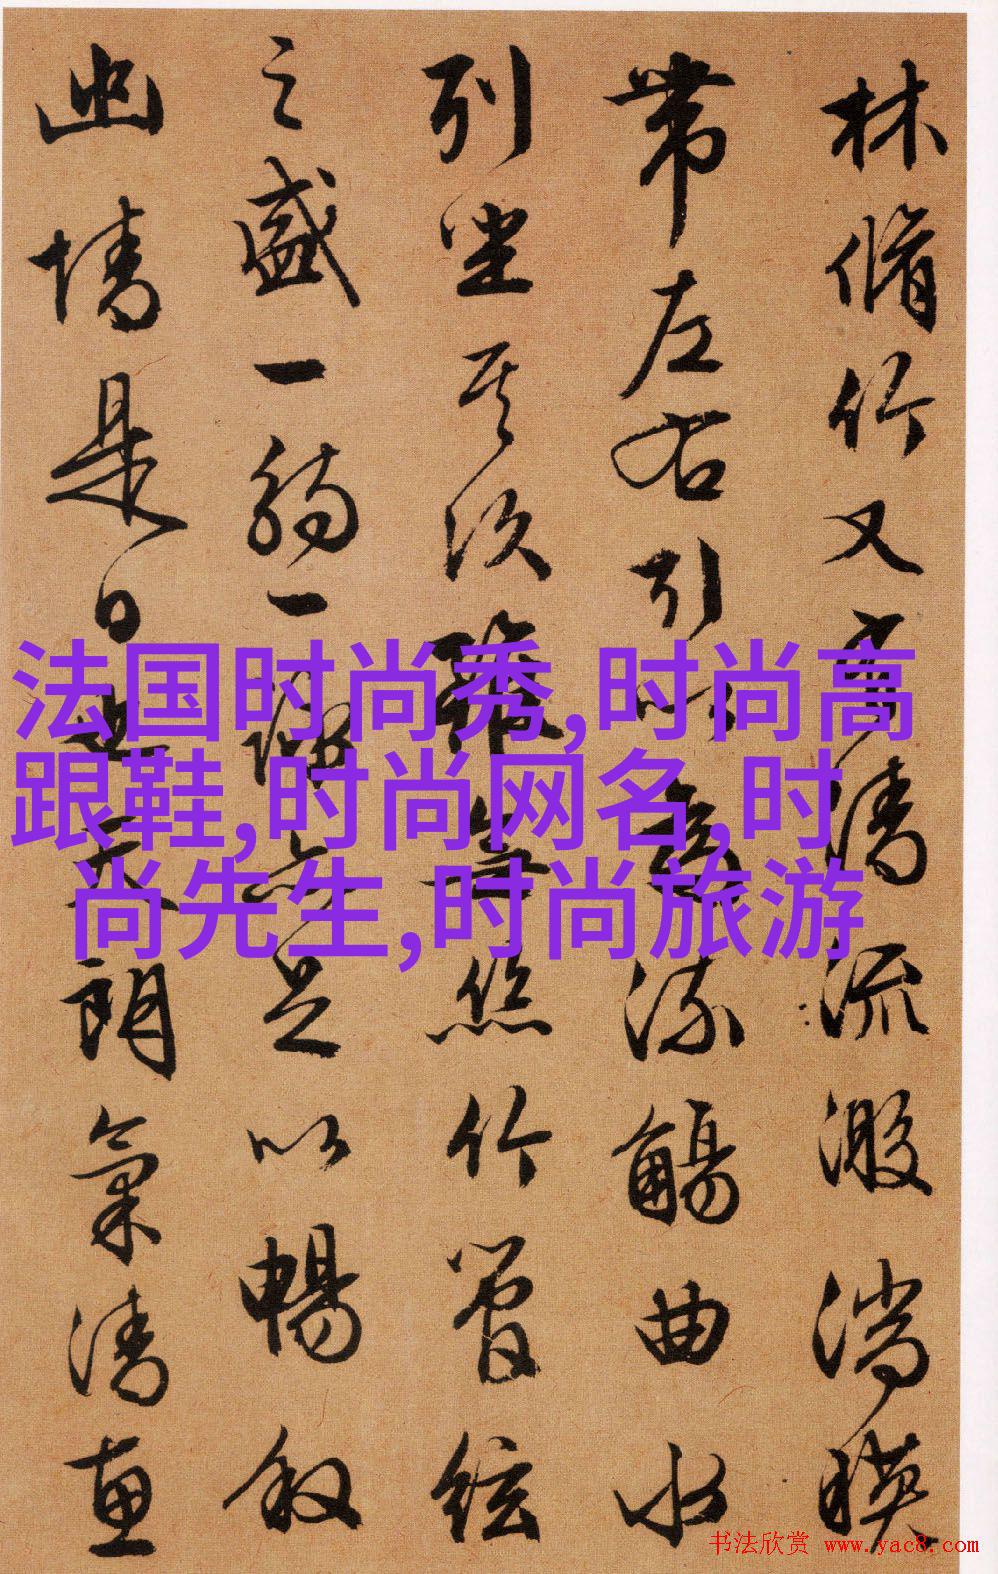 林脩竹又有清流激湍暎
帶左右引以為流觴曲水
列坐其次雖無絲竹管絃
之盛一觴一詠亦足以暢叙
幽情是日也天朗氣清惠
法国时尚秀,时尚高
跟鞋,时尚网名,时
尚先生,时尚旅游
书法欣赏 www.yac8.com